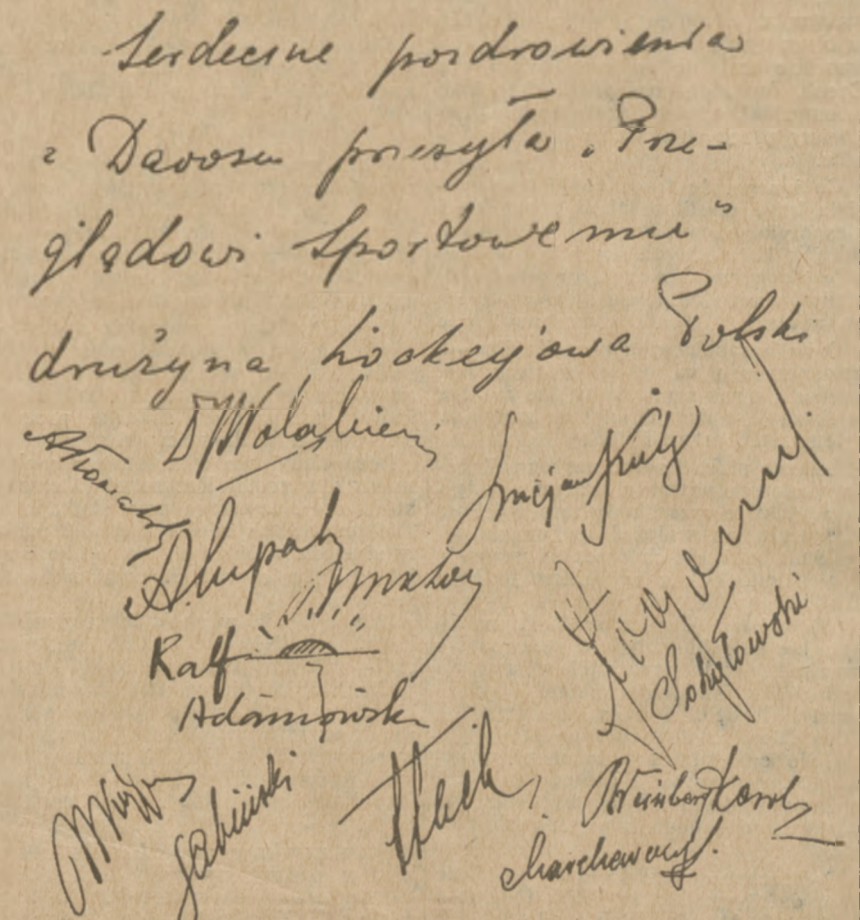 Serdeczne pozdrowienia
z Davosu przesyła „Prze-
glądowi Sportowemu”
drużyna hockejowa Polski
A Kowalski
Lucjan Kulej
A. Tupalski
Ralf
Adamowski
Sokołowski
Sabiński
Weinberg Karol
Marchewczyk